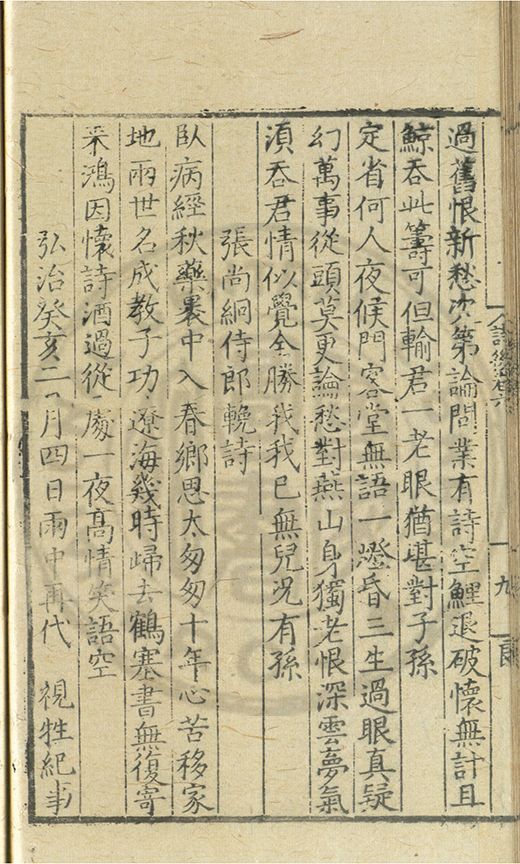 過舊恨新愁次第論問業有詩空鯉退破懷無計且
鯨吞此籌可但輸君一老眼猶堪對子孫
定省何人夜候門客堂無語一燈昏三生過眼真疑
幻萬事從頭莫更論愁對燕山身獨老恨深雲夢氣
湏吞君情似覺全勝我我已無兒况有孫
張尚絅侍郎輓詩
臥病經秋藥裹中入春鄉思太匆匆十年心苦移家
地兩世名成教子功遼海幾時歸去鶴塞書無復寄
來鴻因懷詩酒過從處一夜高情笑語空
弘治癸亥二月四日雨中再代 視牲紀事
九